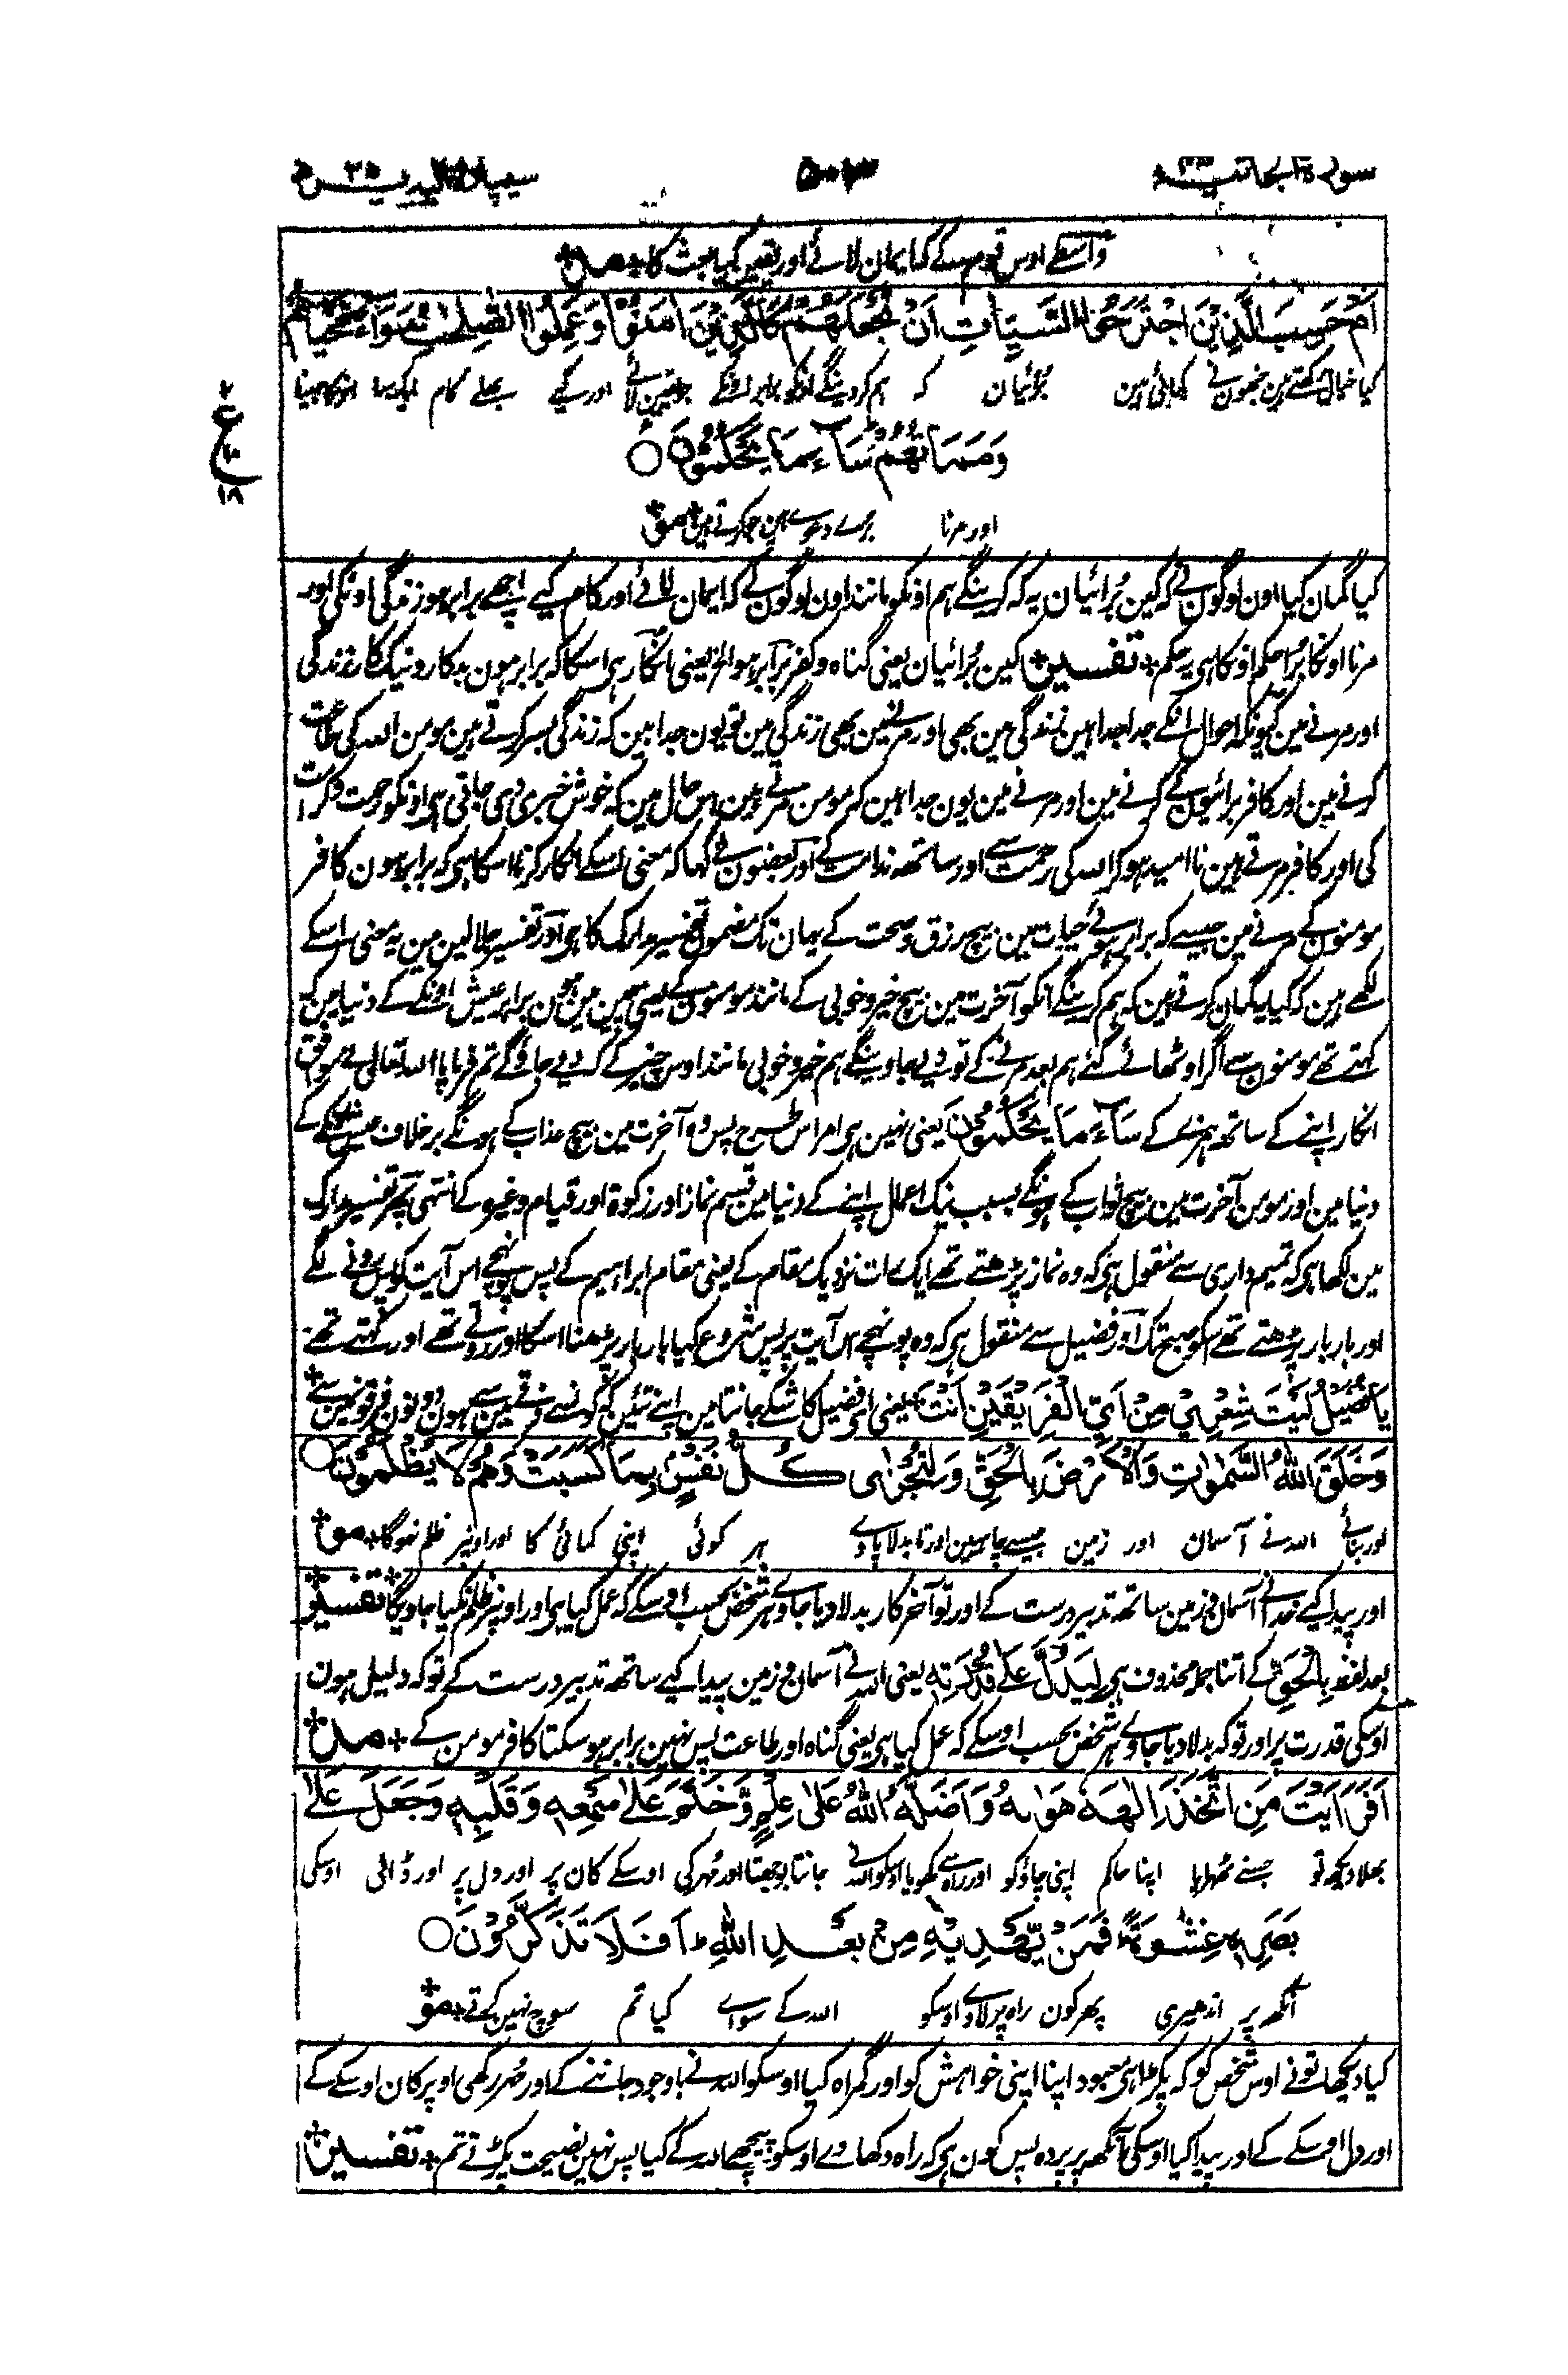 سورة الجاثیة ۵۰۳ سیپارہ الیہ یرد ۲۵
واسطے اوس قوم کے کہ ایمان لائے اور یقین کیا بعث کا
اَمْ حَسِبَ الَّذِيْنَ اجْتَرَحُوا السَّيِّاٰتِ اَنْ نَّجْعَلَهُمْ كَالَّذِيْنَ اٰمَنُوْا وَعَمِلُوا الصّٰلِحٰتِ سَوَآءً مَّحْيَاهُمْ
کیا خیال رکھتے ہین جنھون نے کمائی ہین برائیان کہ ہم کردینگے اونکو برابر اونکے جو یقین لائے اور کیے بھلے کام ایک سا اونکا جینا
وَمَمَاتُهُمْ سَآءَ مَا يَحْكُمُوْنَ ○
اور مرنا برے دعوے ہین جو کرتے ہین مو
ع ۱۸
کیا گمان کیا اون لوگون نے کہ کین برائیان یہ کہ کرینگے ہم اونکو مانند اون لوگون کے کہ ایمان لائے اور کام کیے اچھے برابر ہو زندگی اونکی اور
مرنا اونکا برا حکم اونکا ہی یہ حکم تفسیر کین برائیان یعنی گناہ و کفر برابر ہو الخ یعنی انکار ہی اسکا کہ برابر ہون بدکار و نیک کار زندگی
اور مرنے مین کیونکہ احوال انکے جدا جدا ہین زندگی مین بھی اور مرنے مین بھی زندگی مین تو یون جدا ہین کہ زندگی بسر کرتے ہین مومن اللہ کی طاعت
کرنے مین اور کافر برائیون کے کرنے مین اور مرنے مین یون جدا ہین کہ مومن مرتے ہین اس حال مین کہ خوش خبری دی جاتی ہی اونکو رحمت و کرامت
کی اور کافر مرتے ہین ناامید ہو کر اللہ کی رحمت سے اور ساتھ ندامت کے اور بعضون نے کہا کہ معنی اسکے انکار کرنا اسکا ہی کہ برابر ہون کافر
مومنون کے مرنے مین جیسے کہ برابر ہوئے حیات مین بیچ رزق و صحت کے یہان تک مضمون تفسیر مدارک کا ہی اور تفسیر جلالین مین یہ معنی اسکے
لکھے ہین کہ کیا یہ گمان کرتے ہین کہ ہم کرینگے انکو آخرت مین بیچ خیر و خوبی کے مانند مومنون کے یعنی بیچ عیش کے ہون برابر عیش اونکے کے دنیا مین کہ
کہتے تھے مومنون سے اگر اوٹھائے گئے ہم بعد مرنے کے تو دیے جاوینگے ہم خیر و خوبی مانند اوس چیز کے کہ دیے جاؤگے تم فرمایا اللہ تعالی نے موافق
انکار اپنے کے ساتھ ہمزہ کے سَآءَ مَا يَحْكُمُوْنَ یعنی نہین ہی امر اس طرح پس وہ آخرت مین بیچ عذاب کے ہونگے برخلاف عیش اونکے کے
دنیا مین اور مومن آخرت مین بیچ ثواب کے ہونگے بسبب نیک اعمال اپنے کے دنیا مین قسم نماز اور زکوة اور قیام وغیرہ کے انتہی پھر تفسیر مدارک
مین لکھا ہی کہ تمیم داری سے منقول ہی کہ وہ نماز پڑھتے تھے ایک رات نزدیک مقام کے یعنی مقام ابراہیم کے پس پہنچے اس آیت کو پس رونے لگے
اور بار بار پڑھتے تھے اسکو صبح تک اور فضیل سے منقول ہی کہ وہ پونہچے اس آیت پر پس شروع کیا بار بار پڑھنا اسکا اور روتے تھے اور کہتے تھے
يَا فُضَيْلُ لَيْتَ شِعْرِيْ مِنْ اَيِّ الْفَرِيْقَيْنِ اَنْتَ یعنی ای فضیل کاشکے جانتا مین اپنے تئین کہ کونسے فرقے مین سے ہون دونون فرقونمین سے
وَخَلَقَ اللّٰهُ السَّمٰوٰتِ وَالْاَرْضَ بِالْحَقِّ وَلِتُجْزٰى كُلُّ نَفْسٍ بِمَا كَسَبَتْ وَهُمْ لَا يُظْلَمُوْنَ ○
اور بنائے اللہ نے آسمان اور زمین جیسے چاہیین اور تا بدلا پاوے ہر کوئی اپنی کمائی کا اور اونپر ظلم نہوگا مو
اور پیدا کیے خدا نے آسمان و زمین ساتھ تدبیر درست کے اور تو آخرکار بدلا دیا جاوے ہر شخص بحسب اوسکے کہ عمل کیا ہی اور اونپر ظلم نکیا جاویگا تفسیر
بعد لفظ بِالْحَقِّ کے اتنا جملہ محذوف ہی لِيَدُلَّ عَلٰى قُدْرَتِهٖ یعنی اللہ نے آسمان و زمین پیدا کیے ساتھ تدبیر درست کے تو کہ دلیل ہون
اوسکی قدرت پر اور تو کہ بدلا دیا جاوے ہر شخص بحسب اوسکے کہ عمل کیا ہی یعنی گناہ اور طاعت پس نہین برابر ہو سکتا کافر مومن کے
اَفَرَاَيْتَ مَنِ اتَّخَذَ اِلٰهَهٗ هَوٰىهُ وَاَضَلَّهُ اللّٰهُ عَلٰى عِلْمٍ وَّخَتَمَ عَلٰى سَمْعِهٖ وَقَلْبِهٖ وَجَعَلَ عَلٰى
بھلا دیکھ تو جسنے ٹھہرایا اپنا حاکم اپنی چاؤ کو اور راہ سے کھویا اوسکو اللہ نے جانتا بوجھتا اور مہر کی اوسکے کان پر اور دل پر اور ڈالی اوسکی
بَصَرِهٖ غِشٰوَةً فَمَنْ يَّهْدِيْهِ مِنْۢ بَعْدِ اللّٰهِ ط اَفَلَا تَذَكَّرُوْنَ ○
آنکھ پر اندھیری پھر کون راہ پر لاوے اوسکو اللہ کے سواے کیا تم سوچ نہین کرتے مو
کیا دیکھا تونے اوس شخص کو کہ پکڑا ہی معبود اپنا اپنی خواہش کو اور گمراہ کیا اوسکو اللہ نے باوجود جاننے کے اور مہر رکھی اوپر کان اوسکے کے
اور دل اوسکے کے اور پیدا کیا اوسکی آنکھ پر پردہ پس کون ہی کہ راہ دکھاوے اوسکو پیچھے اللہ کے کیا پس نہین نصیحت پکڑتے تم تفسیر